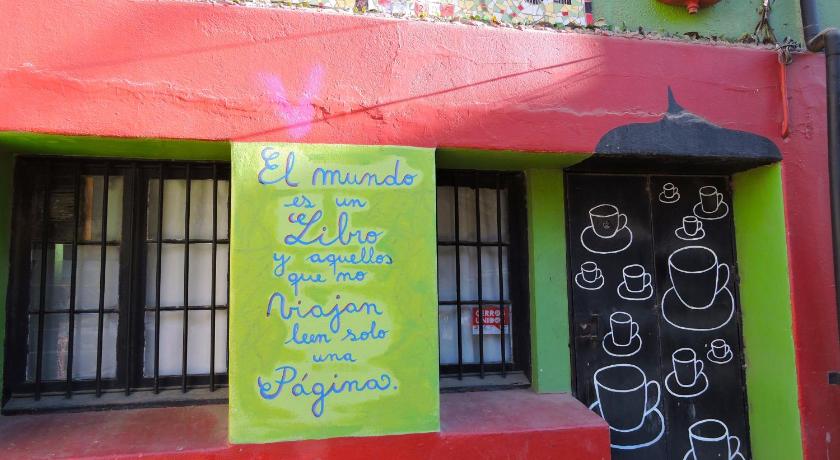 El mundo
es un
Libro
y aquellos
que no
viajan
leen solo
una
Página.
CERROS
UNIDOS